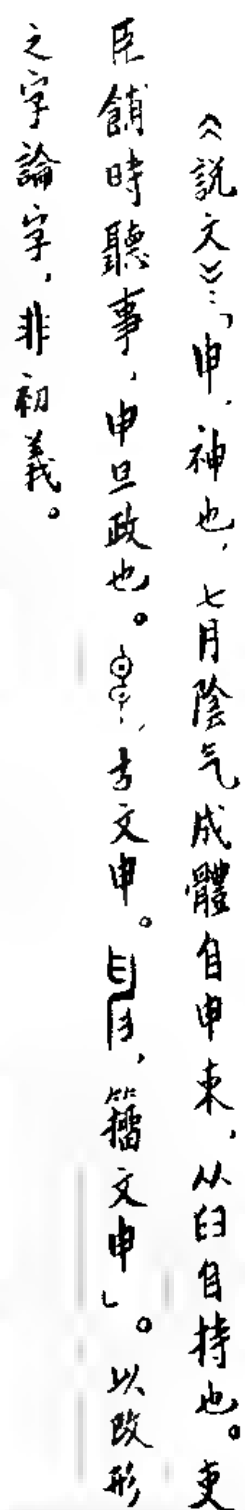 《說文》：「申，神也，七月陰气成體自申束，从𦥑自持也。吏
臣餔時聽事，申旦政也。，古文申。，籀文申」。以改形
之字論字，非初義。